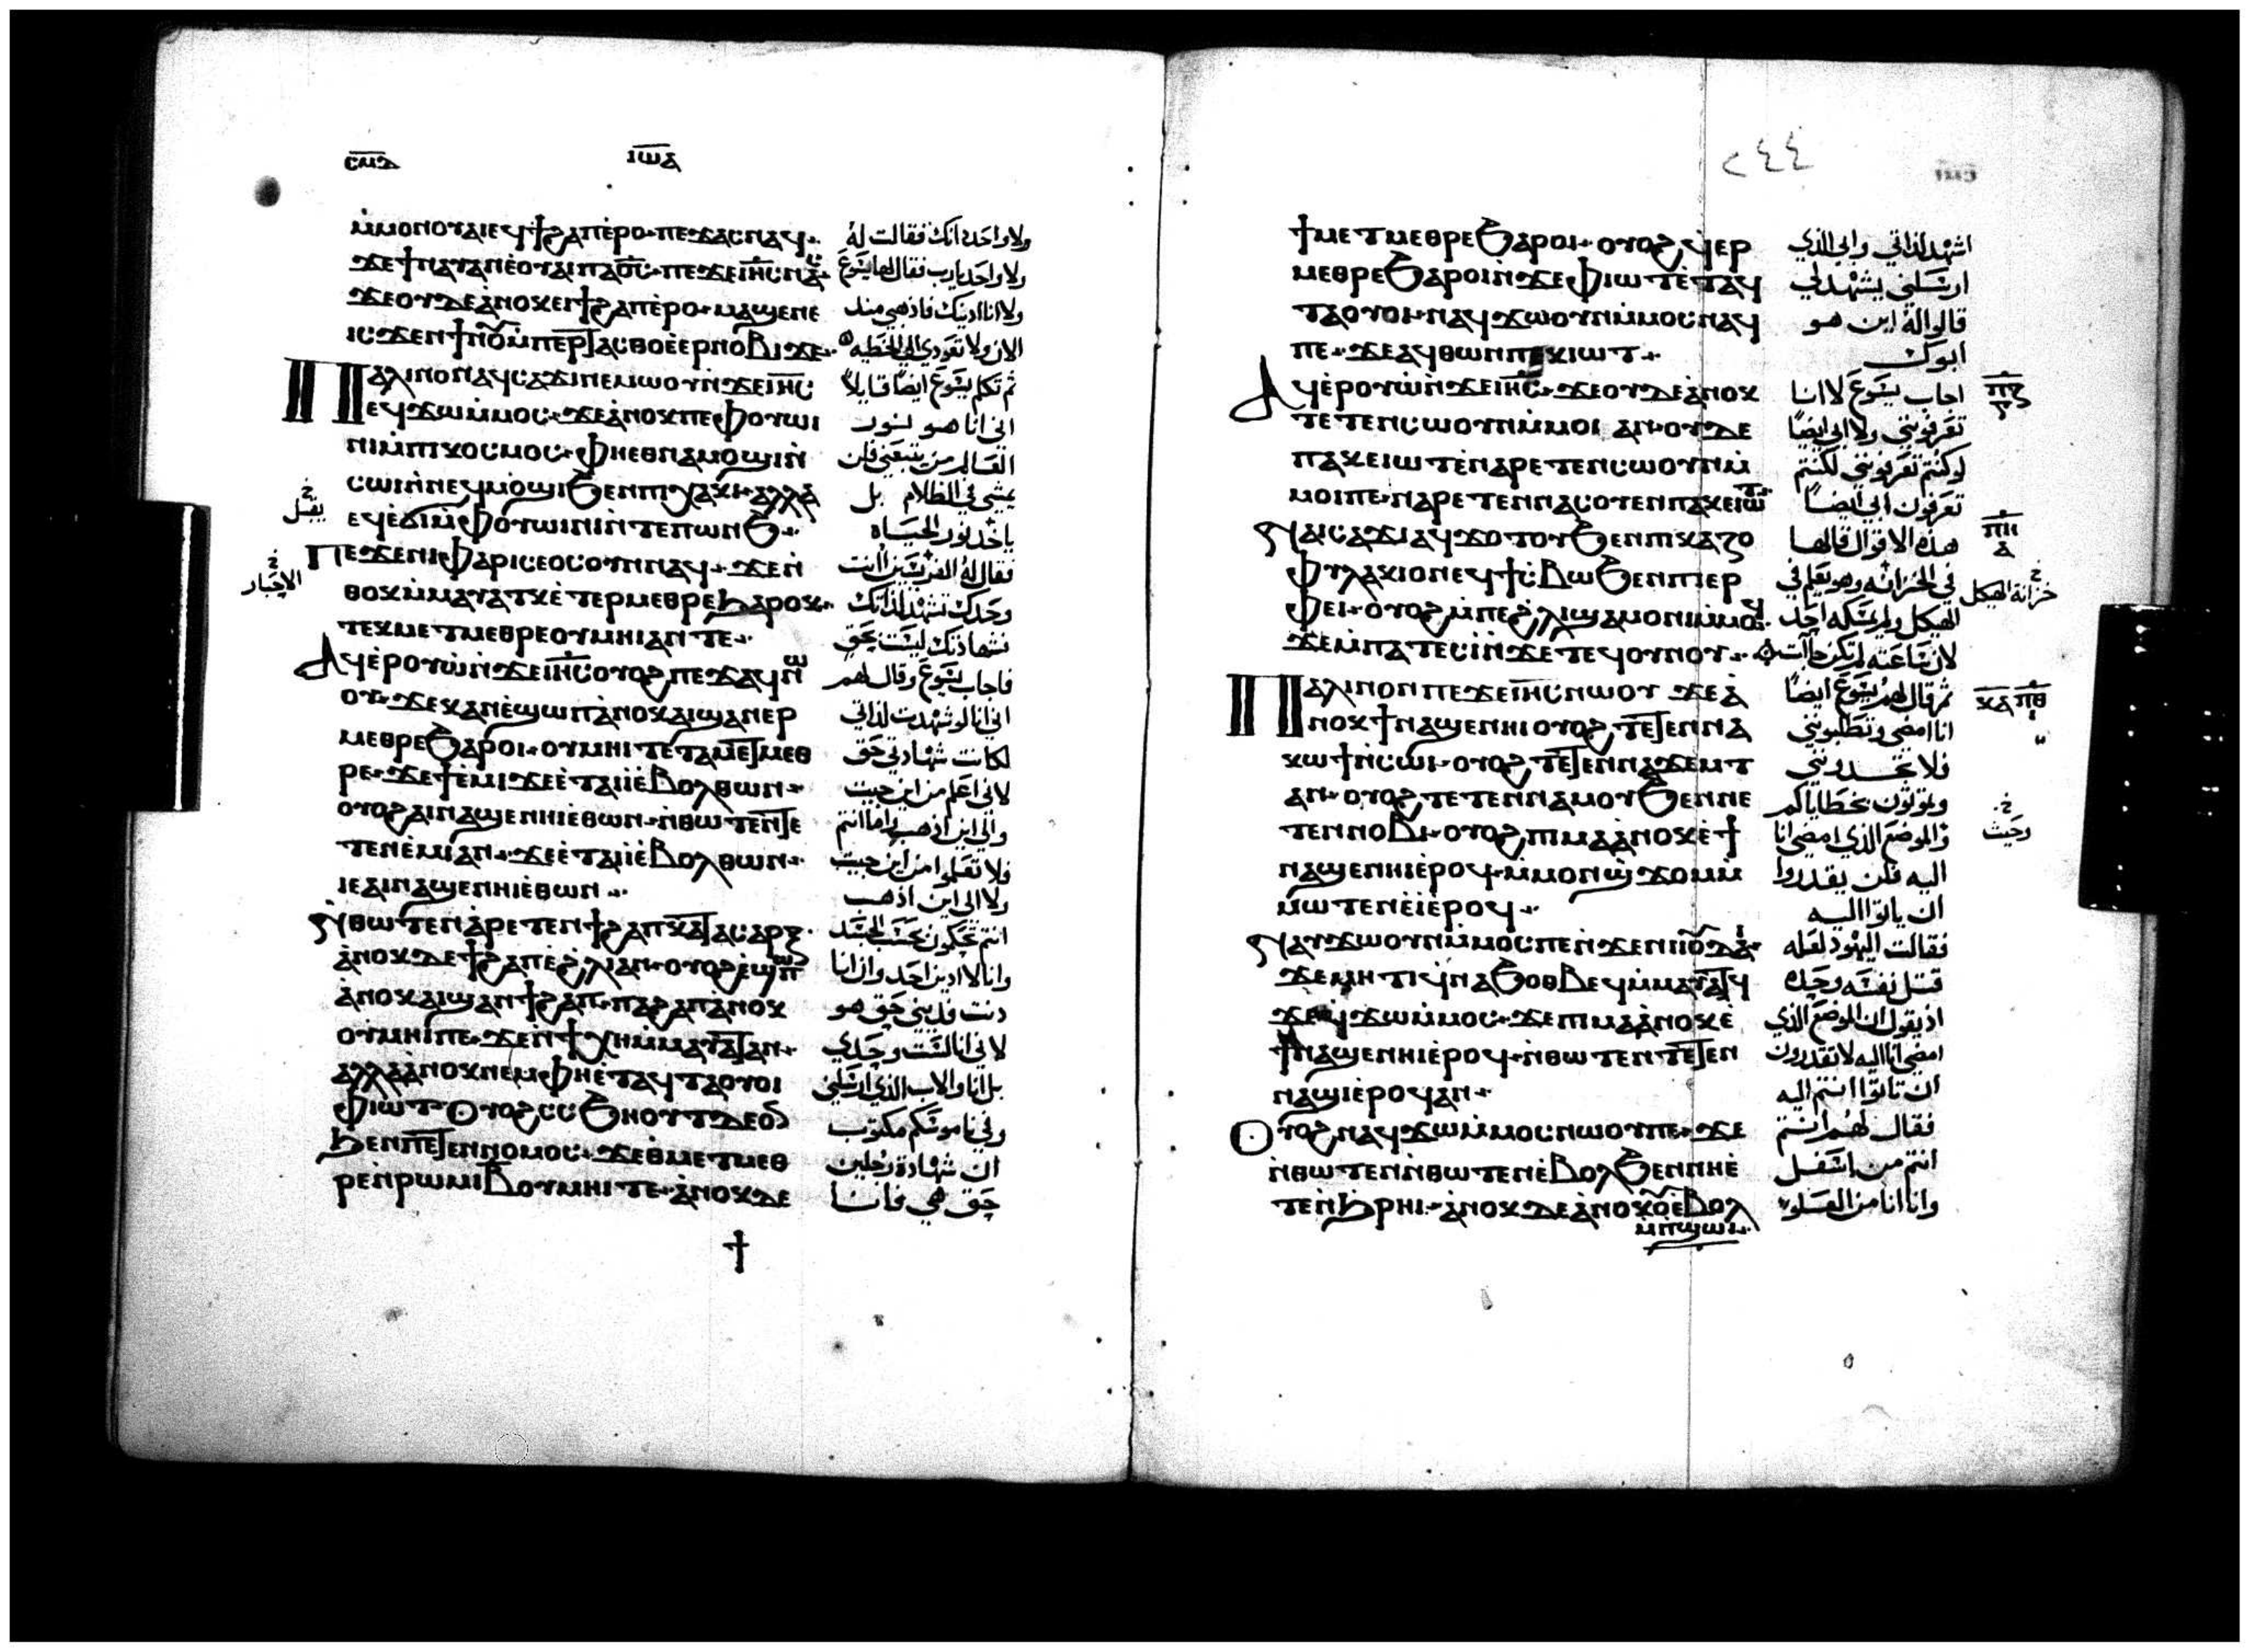 ⲥⲙⲇ ⲓⲱⲁ
ⲙ̀ⲙⲟⲛⲟⲩⲁⲓⲉϥϯϩⲁⲡⲉ̀ⲣⲟ· ⲡⲉϫⲁⲥⲛⲁϥ·
ولا واحد دانك فقالت له
ϫⲉϯⲛⲁⲩⲁⲛⲉ̀ⲟⲩⲁⲓⲡⲁⲟ̅ⲥ̅· ⲡⲉϫⲉⲓⲏ̅ⲥ̅ⲛⲁⲥ
ولا واحد يارب فقال لها يسوع
ϫⲉⲟⲩⲇⲉⲁ̀ⲛⲟⲕⲉⲓϯϩⲁⲡⲉ̀ⲣⲟ· ⲙⲁϣⲉⲛⲉ
ولا انا ادينك فاذهبي منذ
ⲓⲥϫⲉⲛϯⲛⲟⲩⲙ̀ⲡⲉⲣⲧⲁⲥⲑⲟⲉ̀ⲉⲣⲛⲟⲃⲓϫⲉ·
الان ولا تعودي الى الخطيه
ⲡⲁⲗⲓⲛⲟⲛⲁϥⲥⲁϫⲓⲛⲉⲙⲱⲟⲩⲛ̀ϫⲉⲓⲏ̅ⲥ̅
ثم تكلم يسوع ايضا قايلا
ⲉϥϫⲱⲙ̀ⲙⲟⲥ· ϫⲉⲁ̀ⲛⲟⲕⲡⲉⲫⲟⲩⲱⲓ
اني انا هو نور
ⲛⲓⲙ̀ⲡⲓⲕⲟⲥⲙⲟⲥ· ⲫⲏⲉⲑⲛⲁⲙⲟϣⲓⲛ̀
العالم من يتبعني فلن
ⲥⲱⲓⲛ̀ⲛⲉϥⲙⲟϣⲓϧⲉⲛⲡⲓⲭⲁⲕⲓ· ⲁⲗⲗⲁ
يمشي في الظلام بل
ⲉϥⲉ̀ϭⲓⲙ̀ⲫⲟⲩⲱⲓⲛⲓⲛ̀ⲧⲉⲡⲱⲛϧ·
ياخذ نور الحياه
ⲡⲉϫⲉⲛⲓⲫⲁⲣⲓⲥⲉⲟⲥⲟⲩⲛⲛⲁϥ· ϫⲉⲛ̀
فقال له الفريسيين انت
الاحبار
ⲑⲟⲕⲙ̀ⲙⲁⲩⲁⲧⲕⲉ̀ⲧⲉⲣⲙⲉⲑⲣⲉϧⲁⲣⲟⲕ·
وحدك تشهد لذاتك
ⲧⲉⲕⲙⲉⲧⲙⲉⲑⲣⲉⲟⲩⲙⲏⲓⲁⲛⲧⲉ·
فشهادتك ليست بحق
ⲁϥⲉ̀ⲣⲟⲩⲱ̀ⲛ̀ϫⲉⲓⲏ̅ⲥ̅ⲟⲩⲟϩⲡⲉϫⲁϥⲛⲱ
فاجاب يسوع وقال لهم
ⲟⲩ· ϫⲉⲕⲁⲛⲉ̀ϣⲱⲡⲁ̀ⲛⲟⲕⲁⲓϣⲁⲛⲉⲣ
اني انا لو شهدت لذاتي
ⲙⲉⲑⲣⲉϧⲁⲣⲟⲓ· ⲟⲩⲙⲏⲓⲧⲉⲧⲁⲙⲉⲧⲙⲉⲑ
لكانت شهادتي حق
ⲣⲉ· ϫⲉϯⲉ̀ⲙⲓϫⲉⲉ̀ⲧⲁⲓⲓ̀ⲉ̀ⲃⲟⲗⲑⲱⲛ·
لاني اعلم من اين جيت
ⲟⲩⲟϩⲁⲓⲛⲁϣⲉⲛⲏⲓⲉ̀ⲑⲱⲛ· ⲛ̀ⲑⲱⲧⲉⲛⲧⲉ
والى اين اذهب واما انتم
ⲧⲉⲛⲉ̀ⲙⲓⲁⲛ· ϫⲉⲉ̀ⲧⲁⲓⲓ̀ⲉ̀ⲃⲟⲗⲑⲱⲛ·
فلا تعلموا من اين جيت
ⲓⲉⲁⲓⲛⲁϣⲉⲛⲏⲓⲉ̀ⲑⲱⲛ·
ولا الى اين اذهب
ⲛ̀ⲑⲱⲧⲉⲛⲁ̀ⲣⲉⲧⲉⲛϯϩⲁⲡⲕⲁⲧⲁⲥⲁⲣⲝ·
انتم تحكمون بحسب الجسد
ⲁ̀ⲛⲟⲕⲇⲉϯϩⲁⲡⲉ̀ϩⲗⲓⲁⲛ· ⲟⲩⲟϩⲉ̀ϣⲱⲡ
وانا لا ادين احد وان انا
ⲁ̀ⲛⲟⲕⲁⲓϣⲁⲛϯϩⲁⲡ· ⲡⲁϩⲁⲡⲁ̀ⲛⲟⲕ
دنت فديني حق هو
ⲟⲩⲙⲏⲓⲡⲉ· ϫⲉⲛ̀ϯⲭⲏⲙ̀ⲙⲁⲩⲁⲧⲁⲛ·
لاني انا لست وحدي
ⲁⲗⲗⲁⲁ̀ⲛⲟⲕⲛⲉⲙⲫⲏⲉ̀ⲧⲁϥⲧⲁⲟⲩⲟⲓ
بل انا والاب الذي ارسلني
ⲫⲓⲱⲧ ⲟⲩⲟϩⲥⲥϧⲏⲟⲩⲧⲇⲉⲟⲛ
وفي ناموسكم مكتوب
ϧⲉⲛⲡⲉⲧⲉⲛⲛⲟⲙⲟⲥ· ϫⲉⲑⲙⲉⲧⲙⲉⲑ
ان شهادة رجلين
ⲣⲉⲛ̀ⲣⲱⲙⲓⲃⲟⲩⲙⲏⲓⲧⲉ· ⲁ̀ⲛⲟⲕⲇⲉ
حق هي فانا
٢٤٤
ϯⲙⲉⲧⲙⲉⲑⲣⲉϧⲁⲣⲟⲓ· ⲟⲩⲟϩϥⲉⲣ
اشهد لذاتي وابي الذي
ⲙⲉⲑⲣⲉϧⲁⲣⲟⲓⲛ̀ϫⲉⲫⲓⲱⲧⲉ̀ⲧⲁϥ
ارسلني يشهد لي
ⲧⲁⲟⲩⲟⲓ· ⲛⲁⲩϫⲱⲟⲩⲛⲙ̀ⲙⲟⲥⲛⲁϥ
قالوا له اين هو
ⲡⲉ· ϫⲉⲁϥⲑⲱⲛⲡⲉⲕⲓⲱⲧ·
ابوك
ⲁϥⲉ̀ⲣⲟⲩⲱ̀ⲛ̀ϫⲉⲓⲏ̅ⲥ̅· ϫⲉⲟⲩⲇⲉⲁ̀ⲛⲟⲕ
اجاب يسوع لا انا
ⲡⲍ
ⲧⲉⲧⲉⲛⲥⲱⲟⲩⲛⲙ̀ⲙⲟⲓ ⲁⲛ· ⲟⲩⲇⲉ
تعرفونني ولا ابي ايضا
ⲡⲁⲕⲉⲓⲱⲧⲉ̀ⲛⲁⲣⲉⲧⲉⲛⲥⲱⲟⲩⲛⲙ̀
لو كنتم تعرفونني لكنتم
ⲙⲟⲓⲡⲉ· ⲛⲁⲣⲉⲧⲉⲛⲛⲁⲥⲟⲩⲉⲛⲡⲁⲕⲉⲓⲱⲧ
تعرفون ابي ايضا
ⲛⲁⲓⲥⲁϫⲓⲁϥϫⲟⲧⲟⲩϧⲉⲛⲡⲓⲕⲁⲍⲟ
هذه الاقوال قالها
ⲡⲏ
ⲁ
ⲫⲩⲗⲁⲕⲓⲟⲛⲉϥϯⲥⲃⲱϧⲉⲛⲡⲓⲉⲣ
في الخزانه وهو يعلم في
خزانة الهيكل
ⲫⲉⲓ· ⲟⲩⲟϩⲙ̀ⲡⲉϩⲗⲓϣⲁⲙⲟⲛⲓⲙ̀ⲙⲟϥ
الهيكل ولم يمسكه احد
ϫⲉⲙ̀ⲡⲁⲧⲉⲥⲓ̀ⲛ̀ϫⲉⲧⲉϥⲟⲩⲛⲟⲩ·
لان ساعته لم تكن جاات
ⲡⲁⲗⲓⲛⲟⲛⲡⲉϫⲉⲓⲏ̅ⲥ̅ⲛⲱⲟⲩ ϫⲉⲁ̀
ثم قال لهم يسوع ايضا
ⲕⲁ ⲡⲑ
ⲛⲟⲕϯⲛⲁϣⲉⲛⲏⲓⲟⲩⲟϩⲧⲉⲧⲉⲛⲛⲁ
انا امضي وتطلبونني
ⲕⲱϯⲛ̀ⲥⲱⲓ· ⲟⲩⲟϩⲧⲉⲧⲉⲛⲛⲁϫⲉⲙⲧ
فلا تجدونني
ⲁⲛ· ⲟⲩⲟϩⲧⲉⲧⲉⲛⲛⲁⲙⲟⲩϧⲉⲛⲛⲉ
وتموتون بخطاياكم
ⲧⲉⲛⲛⲟⲃⲓ· ⲟⲩⲟϩⲡⲓⲙⲁⲁ̀ⲛⲟⲕⲉ̀ϯ
والموضع الذي امضي انا
وحيث
ⲛⲁϣⲉⲛⲏⲓⲉ̀ⲣⲟϥ· ⲙ̀ⲙⲟⲛϣ̀ϫⲟⲙⲙ̀
اليه فلن يقدروا
ⲙⲱⲧⲉⲛⲉ̀ⲓ̀ⲉ̀ⲣⲟϥ·
ان ياتوا اليه
ⲛⲁⲩϫⲱⲟⲩⲛⲙ̀ⲙⲟⲥⲡⲉⲛ̀ϫⲉⲛⲓⲓⲟⲩⲇⲁⲓ
فقالت اليهود لعله
ϫⲉⲙⲏⲧⲓϥⲛⲁϧⲟⲑⲃⲉϥⲙ̀ⲙⲁⲩⲁⲧϥ
قتل نفسه وحده
ϫⲉϥϫⲱⲙ̀ⲙⲟⲥ· ϫⲉⲡⲓⲙⲁⲁ̀ⲛⲟⲕⲉ̀
اذ يقول ان الموضع الذي
ϯⲛⲁϣⲉⲛⲏⲓⲉ̀ⲣⲟϥ· ⲛ̀ⲑⲱⲧⲉⲛⲧⲉⲧⲉⲛ
امضي انا اليه لا تقدرون
ⲛⲁϣⲓⲉ̀ⲣⲟϥⲁⲛ·
ان تاتوا انتم اليه
ⲟⲩⲟϩⲛⲁϥϫⲱⲙ̀ⲙⲟⲥⲛⲱⲟⲩⲡⲉ· ϫⲉ
فقال لهم انتم
ⲛ̀ⲑⲱⲧⲉⲛⲛ̀ⲑⲱⲧⲉⲛⲉ̀ⲃⲟⲗϧⲉⲛⲛⲏⲉ̀
انتم من اسفل
ⲧⲉⲛ̀ϧⲣⲏⲓ· ⲁ̀ⲛⲟⲕⲇⲉⲁ̀ⲛⲟⲕⲟⲩⲉ̀ⲃⲟⲗ
وانا انا من العلو
ⲙ̀ⲡϣⲱⲓ·